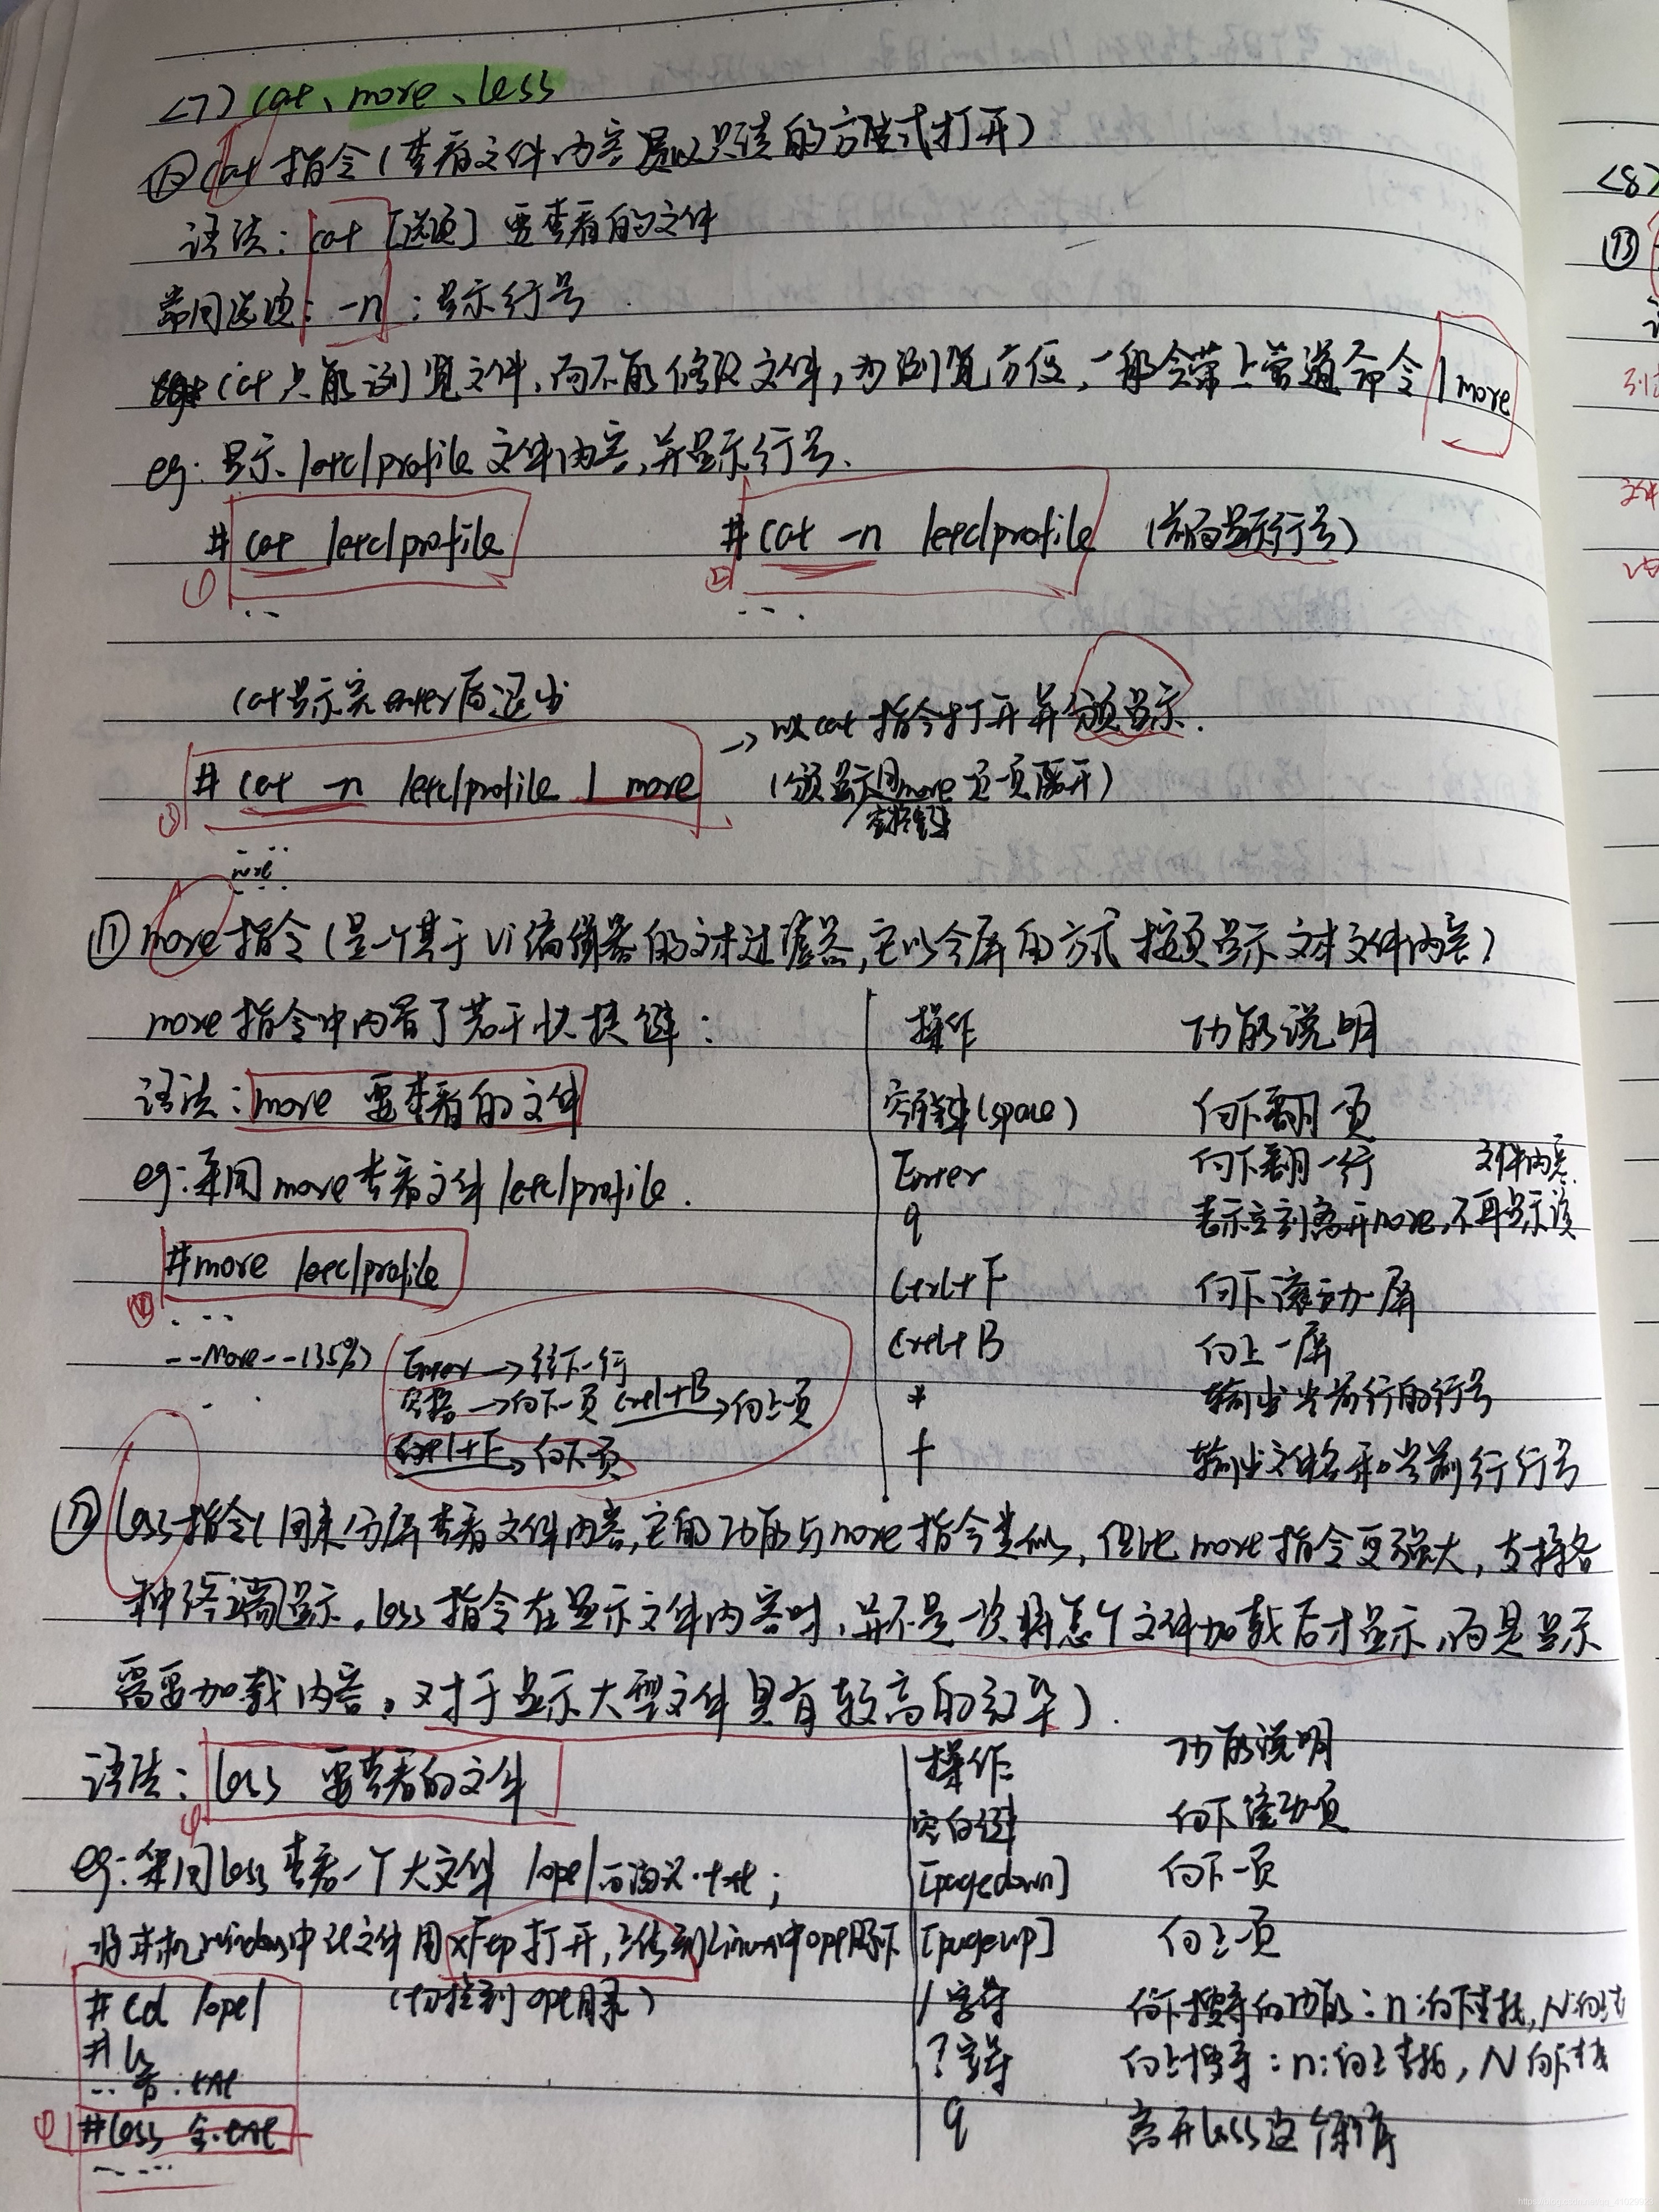 <7> cat、more、less
⑩ cat 指令(查看文件内容是以只读的方式打开)
语法: cat [选项] 要查看的文件
常用选项: -n :显示行号
cat 只能浏览文件,而不能修改文件,为浏览方便,一般会带上管道命令 | more
eg: 显示 /etc/profile 文件内容,并显示行号.
# cat /etc/profile
① ...
# cat -n /etc/profile (前面显示行号)
② ...
cat显示完enter后退出
# cat -n /etc/profile | more
③ ...
→ 以cat指令打开并分页显示.
(分页显示用more一页一页展开)
空格键
more
⑪ more指令(是一个基于Vi编辑器的文本过滤器,它以全屏的方式按页显示文本文件内容)
more指令中内置了若干快捷键:
语法: more 要查看的文件
eg:采用more查看文件 /etc/profile.
#more /etc/profile
...
--More--(35%)
Enter → 往下一行
空格 → 向下一页 ctrl+B → 向上一页
ctrl+F → 向下一页
操作 功能说明
空格键(space) 向下翻一页
Enter 向下翻一行
q 表示立刻离开more,不再显示该文件内容.
Ctrl+F 向下滚动一屏
Ctrl+B 向上一屏
* 输出当前行的行号
f 输出文件名和当前行行号
⑫ less指令(用来分屏查看文件内容,它的功能与more指令类似,但比more指令更强大,支持各
种终端显示。less指令在显示文件内容时,并不是一次将整个文件加载后才显示,而是显示
需要加载内容。对于显示大型文件具有较高的效率).
语法: less 要查看的文件
eg:采用less查看一个大文件 /opt/
将本机windows中 文件用xftp打开,上传到Linux中opt目录下
(切换到opt目录)
# cd /opt/
# ls
... .txt
#less 金.txt
.....
操作 功能说明
空白键 向下滚动一页
[pagedown] 向下一页
[pageup] 向上一页
/字符 向下搜寻的功能: n:向下查找, N向上
?字符 向上搜寻: n:向上查找, N向下查找
q 离开less这个程序
<8>
⑬